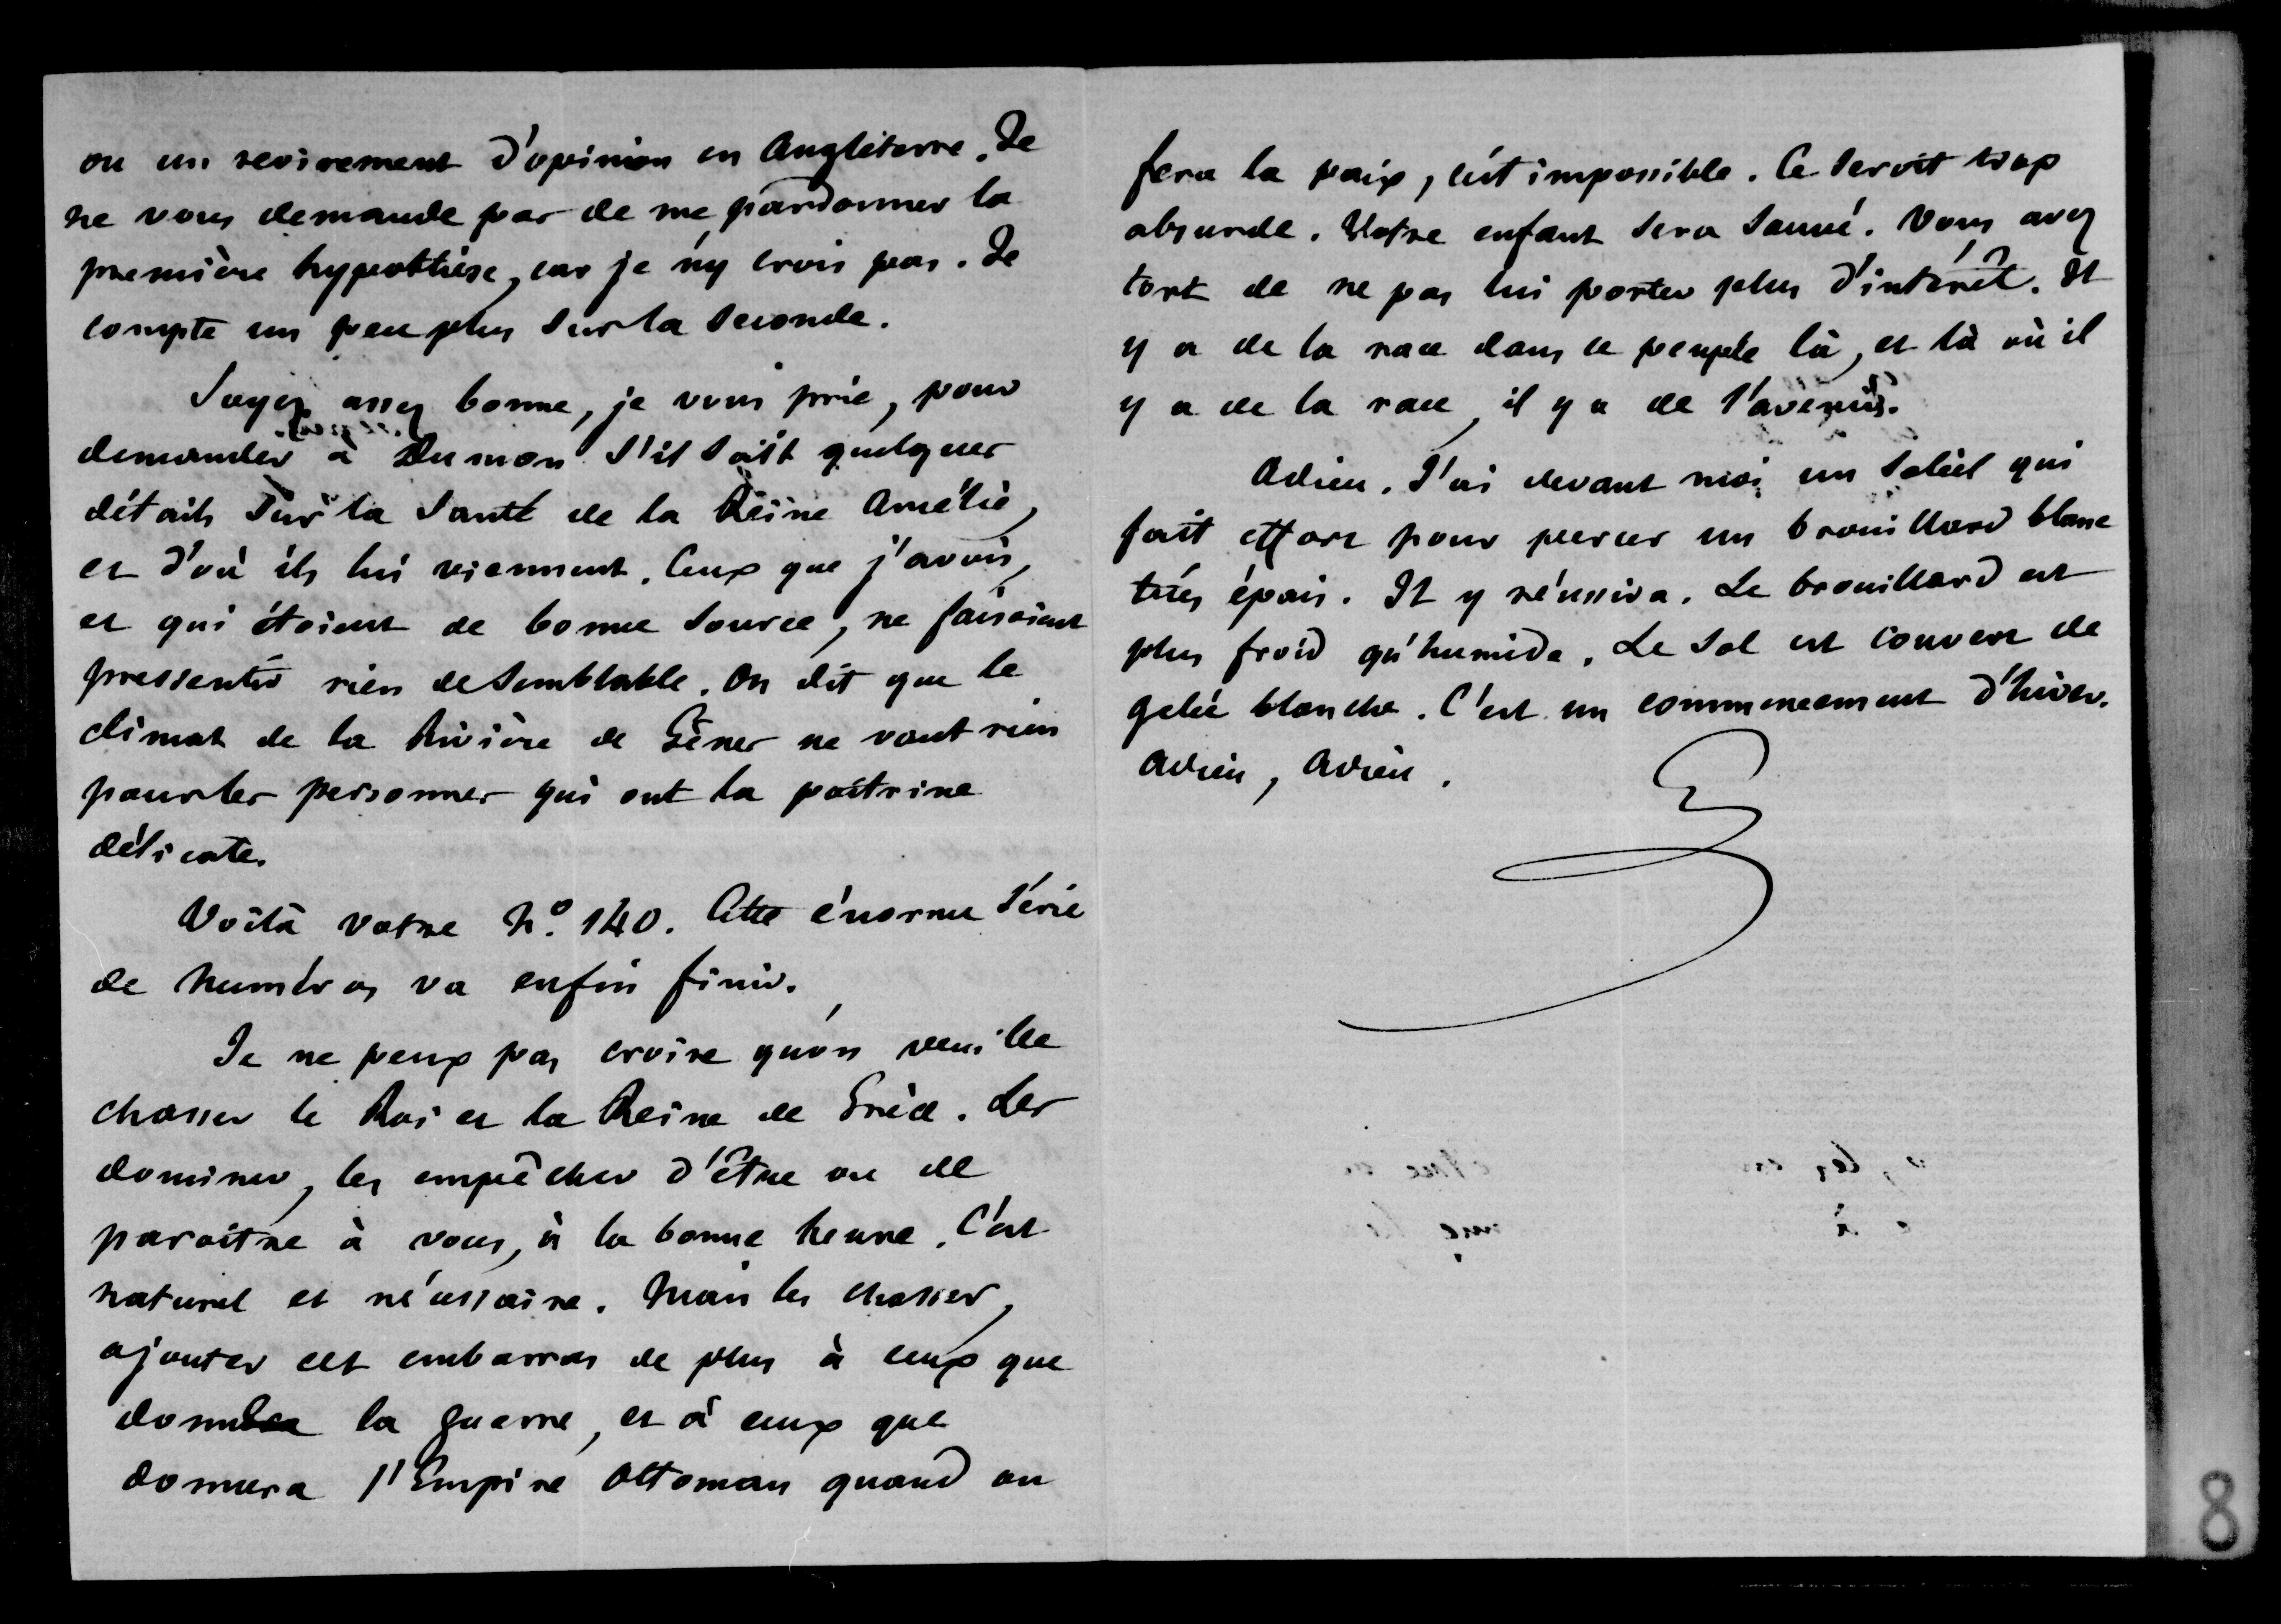 ou un revirement d'opinion en Angleterre. Je
ne vous demande pas de me pardonner la
première hypothèse, car je n'y crois pas. Je
compte un peu plus sur la seconde.
Soyez assez bonne, je vous prie, pour
demander à Dumon s'il sait quelques
détails sur la santé de la Reine Amélie,
et d'où ils lui viennent. Ceux que j'avois,
et qui étoient de bonne source, ne faisoient
pressentir rien de semblable. On dit que le
climat de la Rivière de Gênes ne vaut rien
pour les personnes qui ont la poitrine
délicate.
Voilà votre No. 140. Cette énorme série
de numéros va enfin finir.
Je ne peux pas croire qu'on veuille
chasser le Roi et la Reine de Grèce. Les
dominer, les empêcher d'être ou de
paroitre à vous, à la bonne heure. C'est
naturel et nécessaire. Mais les chasser,
ajouter cet embarras de plus à ceux que
donne la guerre, et à ceux que
donnera l'Empire Ottoman quand on
fera la paix, c'est impossible. Ce seroit trop
absurde. Votre enfant sera sauvé. Vous avez
tort de ne pas lui porter plus d'intérêt. Il
y a de la race dans ce peuple là, et là où il
y a de la race, il y a de l'avenir.
Adieu. J'ai devant moi un soleil qui
fait effort pour percer un brouillard blanc
très épais. Il y réussira. Le brouillard est
plus froid qu'humide. Le sol est couvert de
gelée blanche. C'est un commencement d'hiver.
Adieu, Adieu.
8